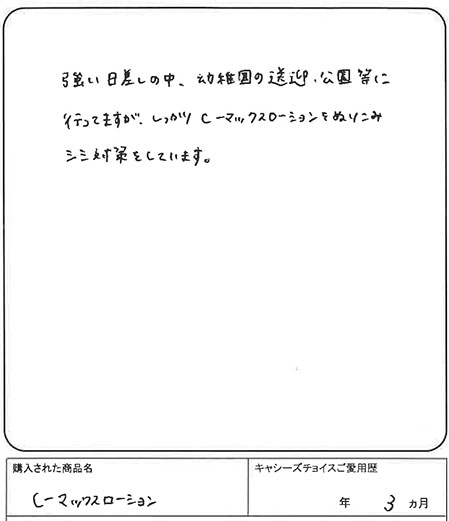 強い日差しの中、幼稚園の送迎、公園等に
行ってますが、しっかりC-マックスローションをぬりこみ
シミ対策をしています。
購入された商品名
キャシーズチョイスご愛用歴
C-マックスローション
年 3 カ月